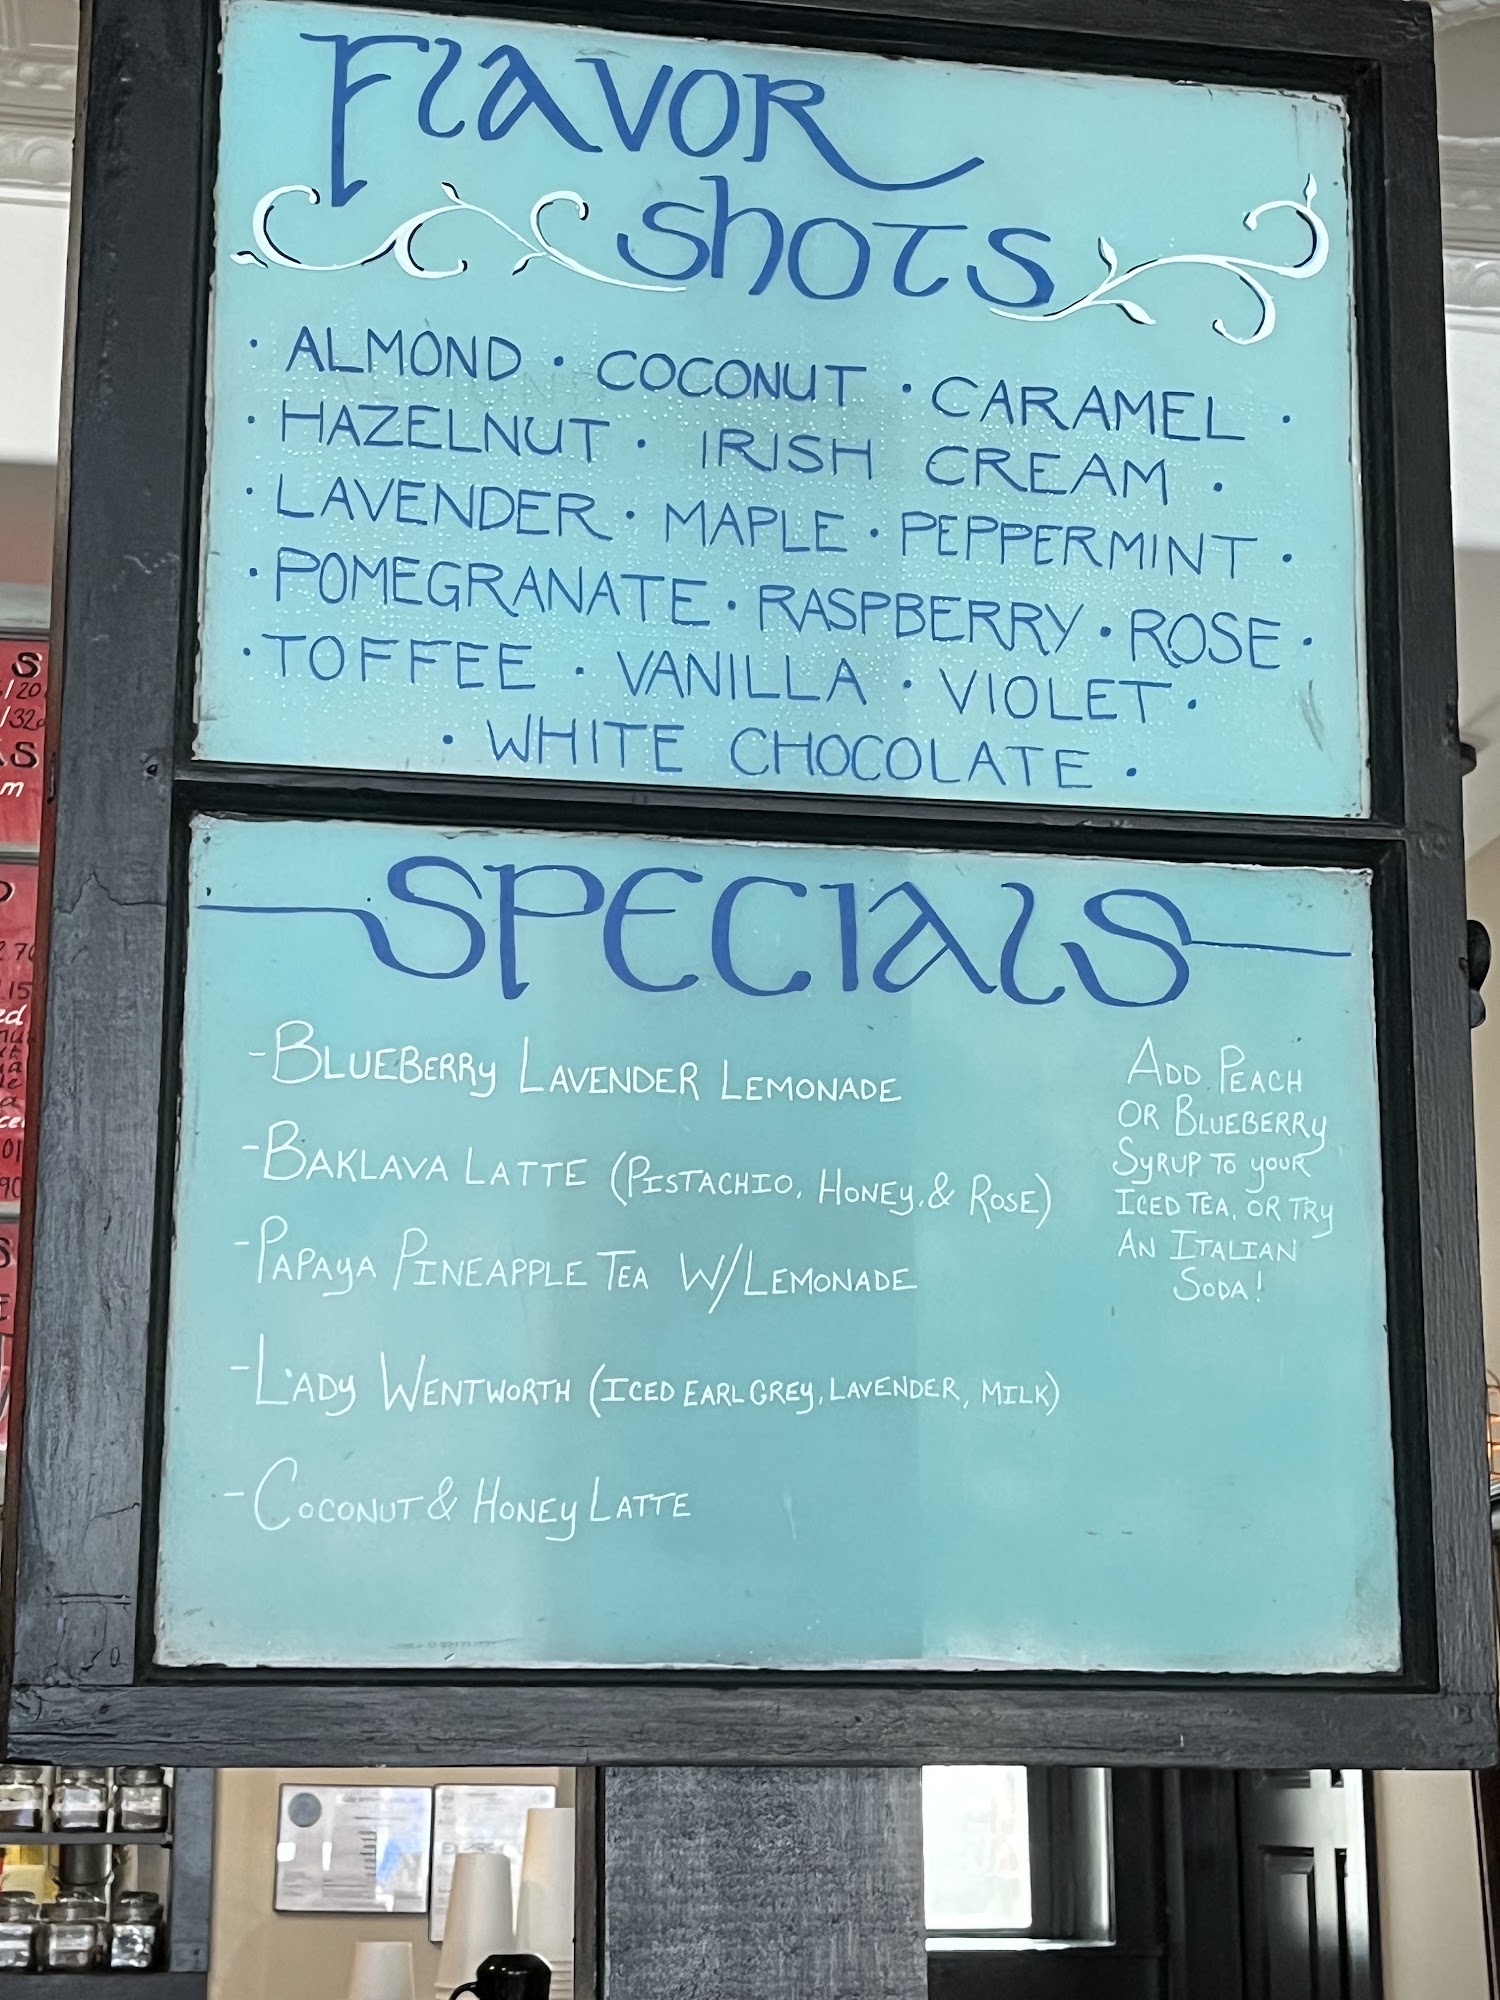 Flavor
Shots
· ALMOND · COCONUT · CARAMEL ·
· HAZELNUT · IRISH CREAM ·
· LAVENDER · MAPLE · PEPPERMINT ·
· POMEGRANATE · RASPBERRY · ROSE ·
· TOFFEE · VANILLA · VIOLET ·
· WHITE CHOCOLATE ·
SPECIALS
- BLUEBERRY LAVENDER LEMONADE
- BAKLAVA LATTE (PISTACHIO, HONEY, & ROSE)
- PAPAYA PINEAPPLE TEA W/LEMONADE
- LADY WENTWORTH (ICED EARL GREY, LAVENDER, MILK)
- COCONUT & HONEY LATTE
ADD PEACH
OR BLUEBERRY
SYRUP TO YOUR
ICED TEA, OR TRY
AN ITALIAN
SODA!